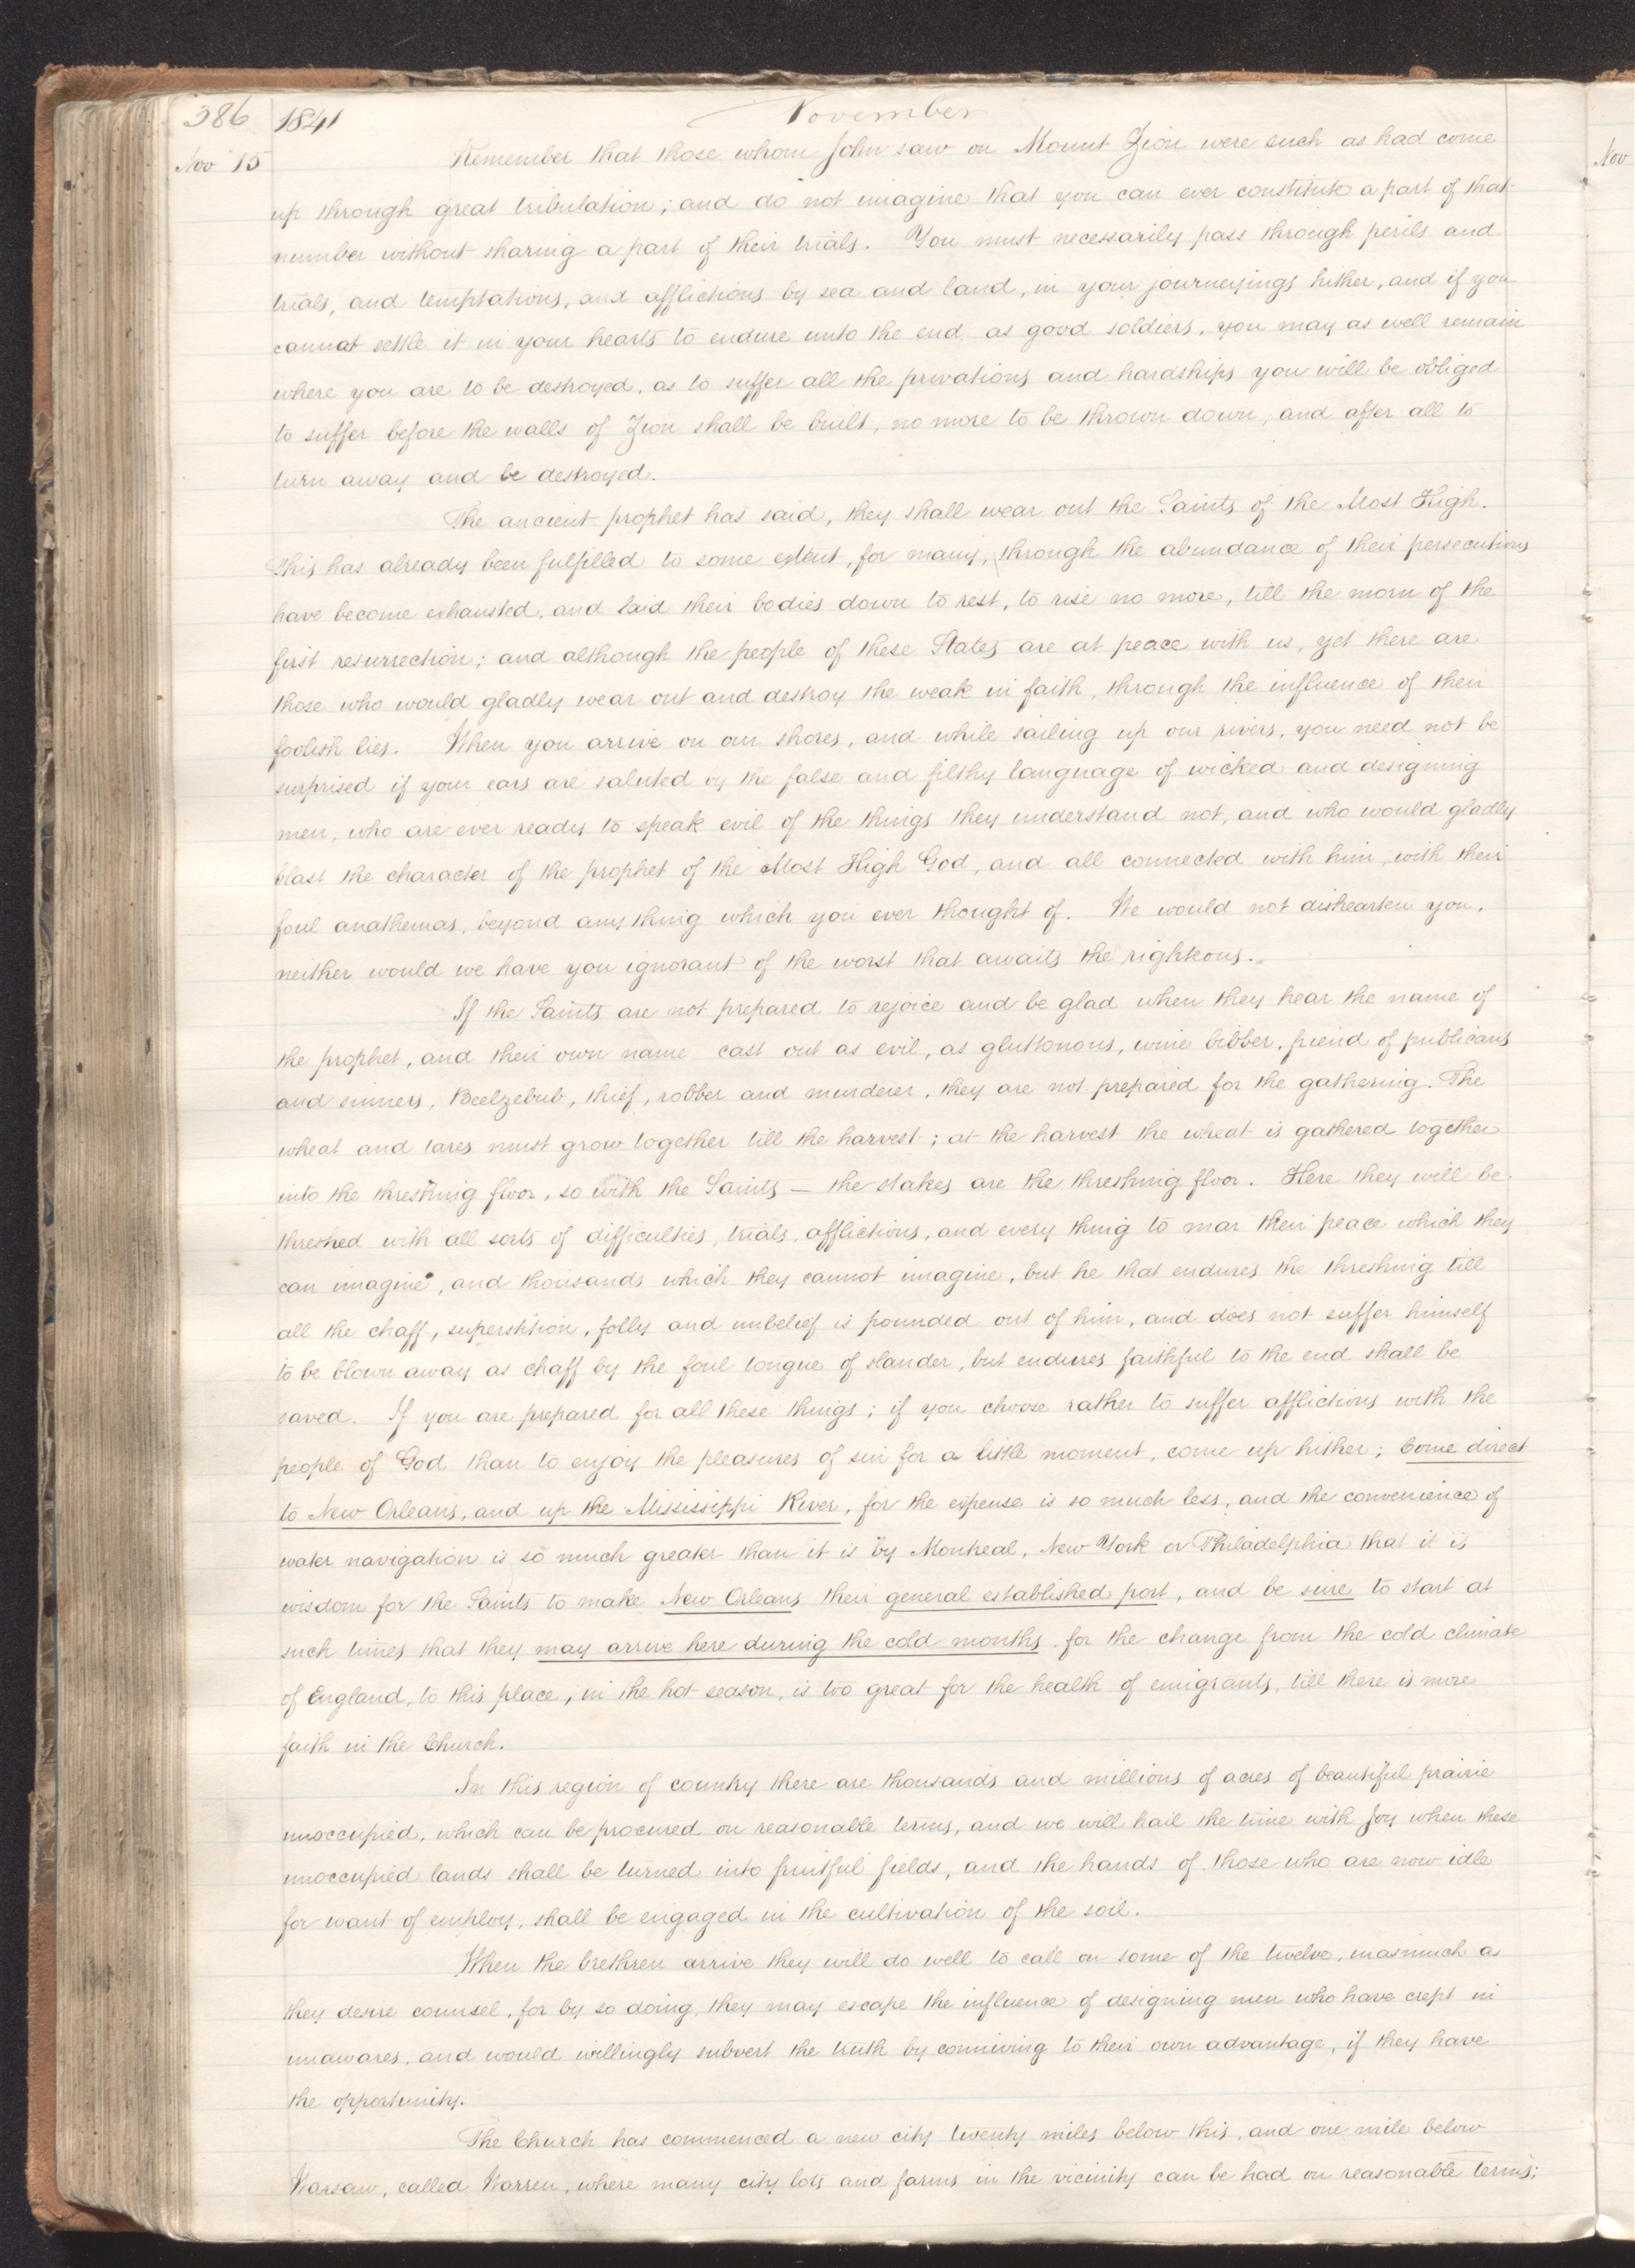 386 1841 November
Nov 15 Remember that those whom John saw on Mount Zion were such as had come
up through great tribulation; and do not imagine that you can ever constitute a part of that
number without sharing a part of their trials. You must necessarily pass through perils and
trials, and temptations, and afflictions by sea and land, in your journeyings hither, and if you
cannot settle it in your hearts to endure unto the end as good soldiers, you may as well remain
where you are to be destroyed, as to suffer all the privations and hardships you will be obliged
to suffer before the walls of Zion shall be built, no more to be thrown down, and after all to
turn away and be destroyed.
The ancient prophet has said, they shall wear out the Saints of the Most High.
This has already been fulfilled to some extent, for many, through the abundance of their persecutions
have become exhausted, and laid their bodies down to rest, to rise no more, till the morn of the
first resurrection; and although the people of these States are at peace with us, yet there are
those who would gladly wear out and destroy the weak in faith, through the influence of their
foolish lies. When you arrive on our shores, and while sailing up our rivers, you need not be
surprised if your ears are saluted by the false and filthy language of wicked and designing
men, who are ever ready to speak evil of the things they understand not, and who would gladly
blast the character of the prophet of the Most High God, and all connected with him, with their
foul anathemas, beyond any thing which you ever thought of. We would not dishearten you,
neither would we have you ignorant of the worst that awaits the righteous.
If the Saints are not prepared to rejoice and be glad when they hear the name of
the prophet, and their own name cast out as evil, as gluttonous, wine bibber, friend of publicans
and sinners, Beelzebub, thief, robber and murderer, they are not prepared for the gathering. The
wheat and tares must grow together till the harvest; at the harvest the wheat is gathered together
into the threshing floor, so with the Saints — the stakes are the threshing floor. Here they will be
threshed with all sorts of difficulties, trials, afflictions, and every thing to mar their peace which they
can imagine, and thousands which they cannot imagine, but he that endures the threshing till
all the chaff, superstition, folly and unbelief is pounded out of him, and does not suffer himself
to be blown away as chaff by the foul tongue of slander, but endures faithful to the end shall be
saved. If you are prepared for all these things; if you choose rather to suffer afflictions with the
people of God than to enjoy the pleasures of sin for a little moment, come up hither; Come direct
to New Orleans, and up the Mississippi River, for the expense is so much less, and the convenience of
water navigation is so much greater than it is by Montreal, New York or Philadelphia that it is
wisdom for the Saints to make New Orleans their general established port, and be sure to start at
such times that they may arrive here during the cold months for the change from the cold climate
of England, to this place, in the hot season, is too great for the health of emigrants, till there is more
faith in the Church.
In this region of country there are thousands and millions of acres of beautiful prairie
unoccupied, which can be procured on reasonable terms, and we will hail the time with joy when these
unoccupied lands shall be turned into fruitful fields, and the hands of those who are now idle
for want of employ, shall be engaged in the cultivation of the soil.
When the brethren arrive they will do well to call on some of the twelve, inasmuch as
they desire counsel, for by so doing, they may escape the influence of designing men who have crept in
unawares, and would willingly subvert the truth by conniving to their own advantage, if they have
the opportunity.
The Church has commenced a new city twenty miles below this, and one mile below
Warsaw, called Warren, where many city lots and farms in the vicinity can be had on reasonable terms;
Nov